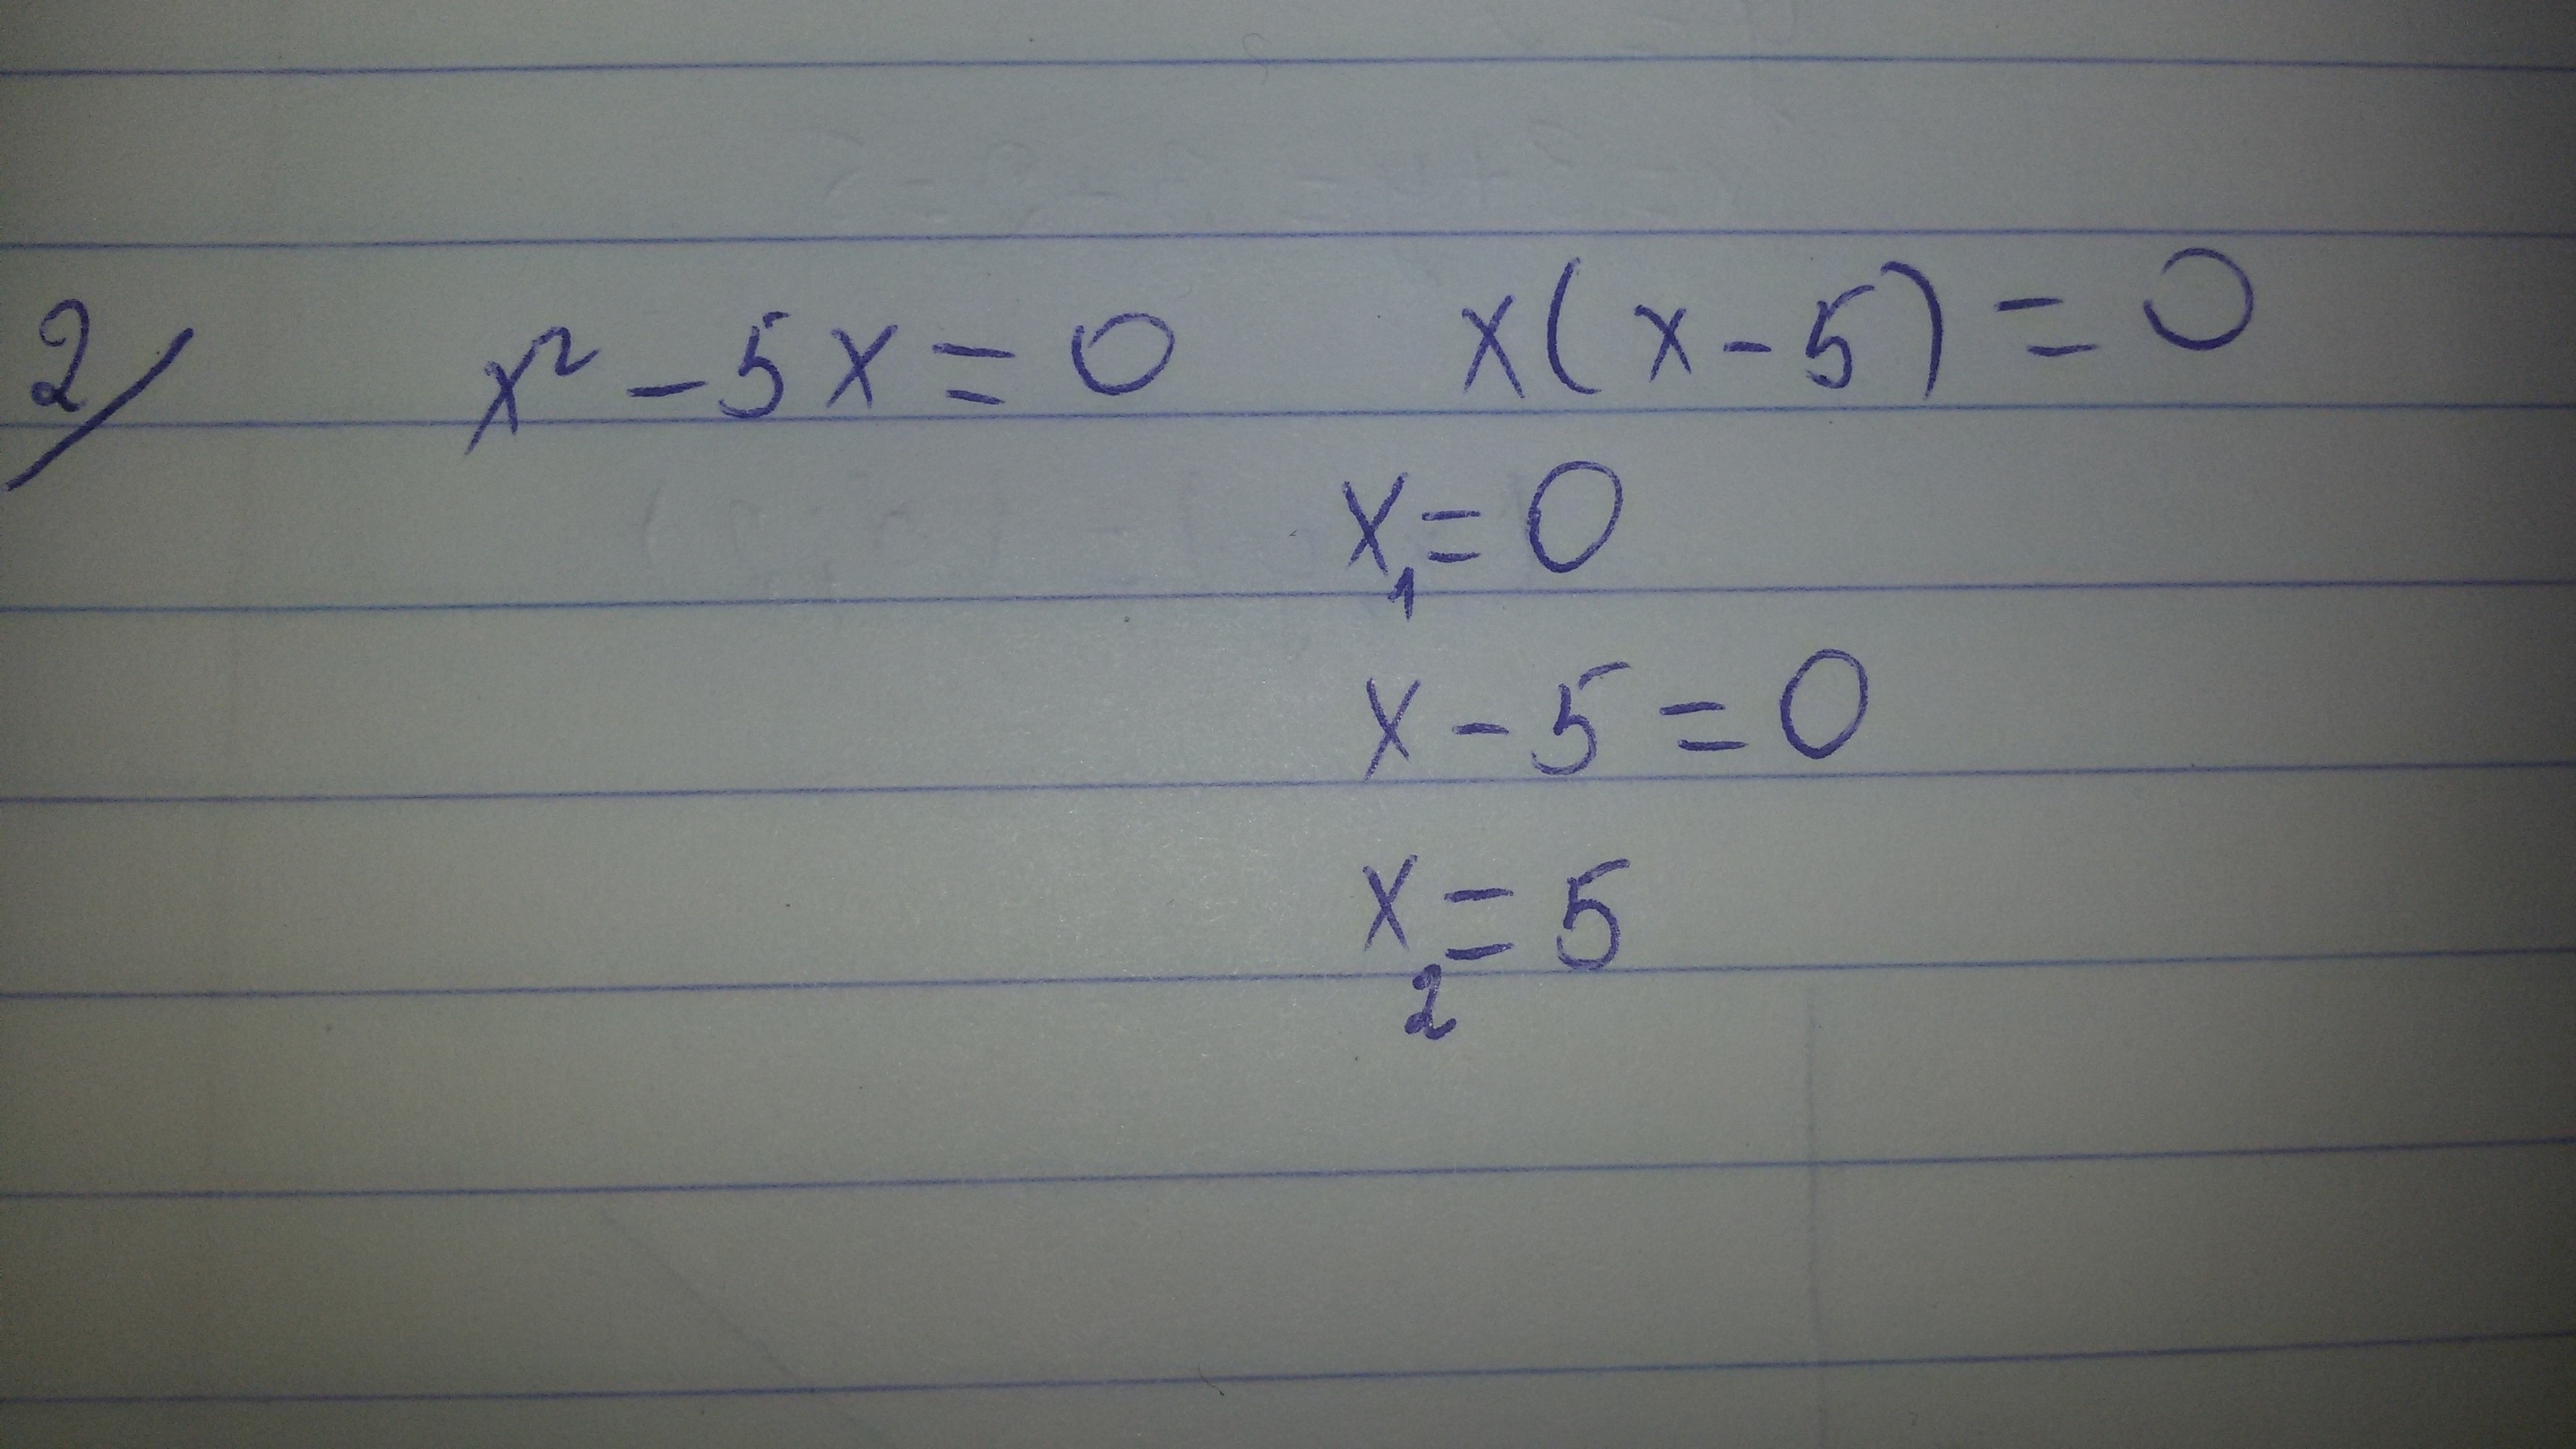 2/ x² - 5x = 0 x(x - 5) = 0
x₁ = 0
x - 5 = 0
x₂ = 5